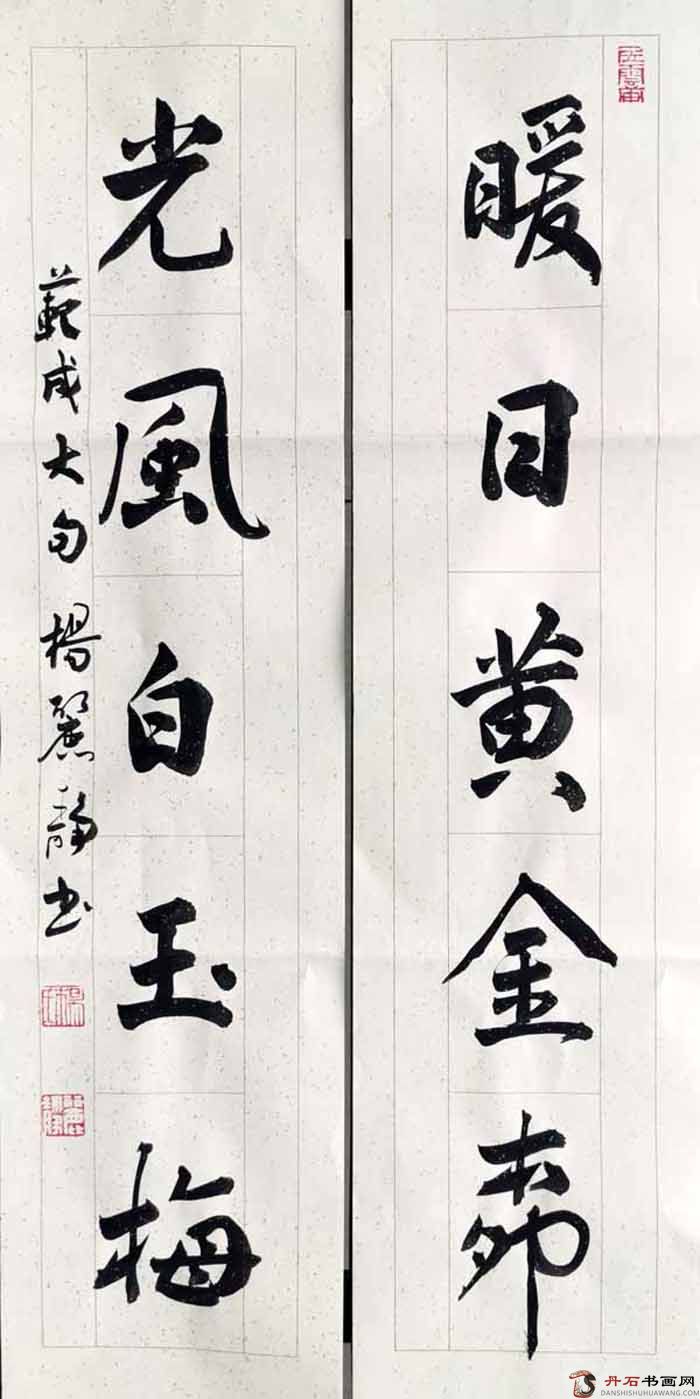 暖日黄金柳
光風白玉梅
範成大句 楊麗静书
丹石书画网
DANSHISHUHUAWANG.COM